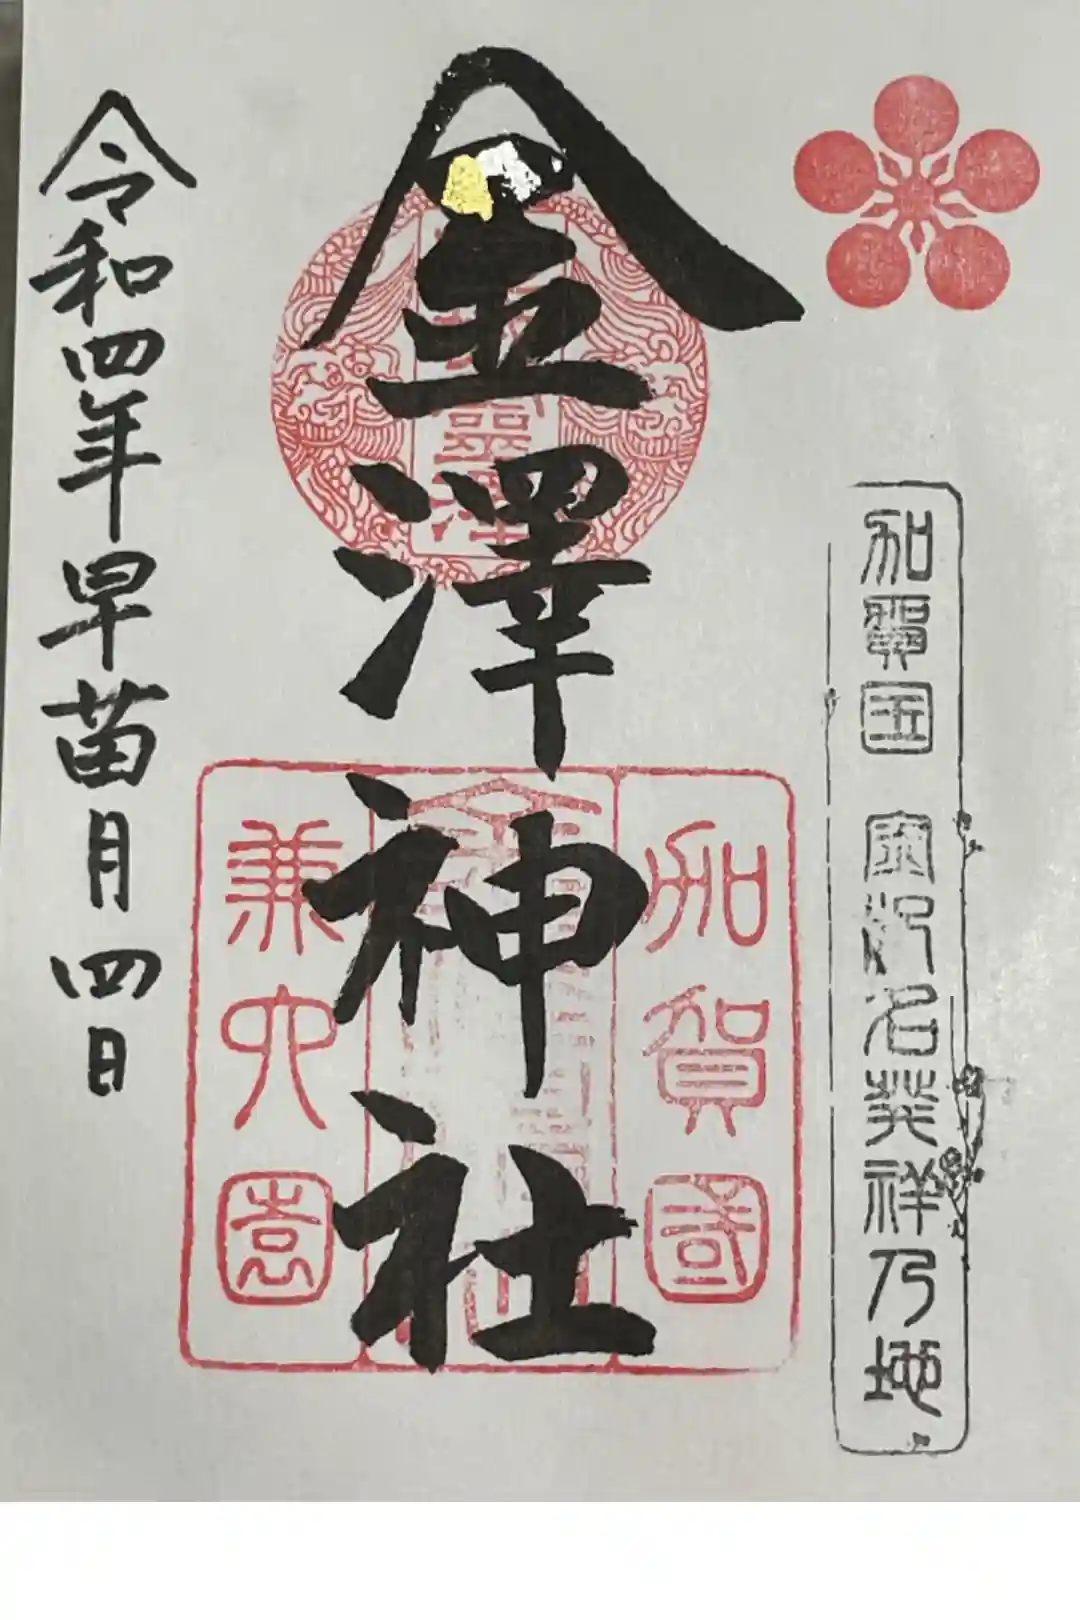 加賀国 金沢名発祥乃地
加賀國
金澤神社
兼六園
令和四年早苗月四日